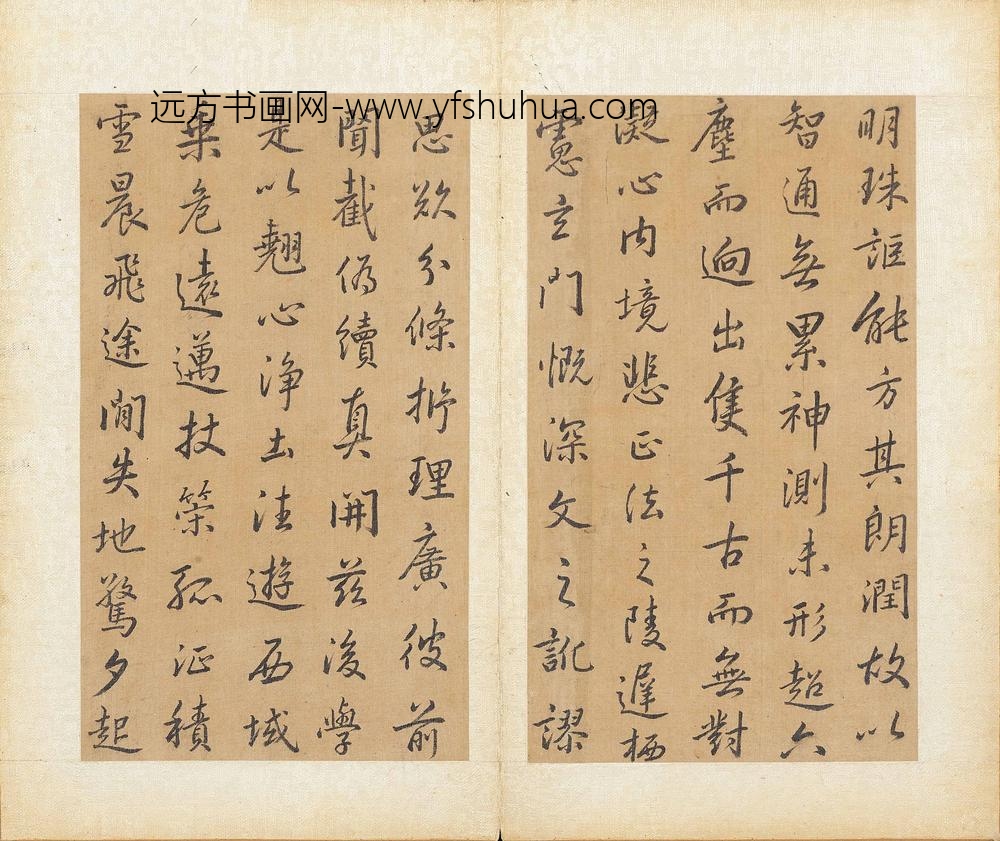 远方书画网-www.yfshuhua.com
明珠詎能方其朗潤故以
智通無累神測未形超六
塵而迥出隻千古而無對
凝心内境悲正法之陵遲栖
慮玄門慨深文之訛謬
思欲分條析理廣彼前
聞截偽續真開茲後學
是以翹心浄土往遊西域
乘危遠邁杖策孤征積
雪晨飛途閒失地驚夕起